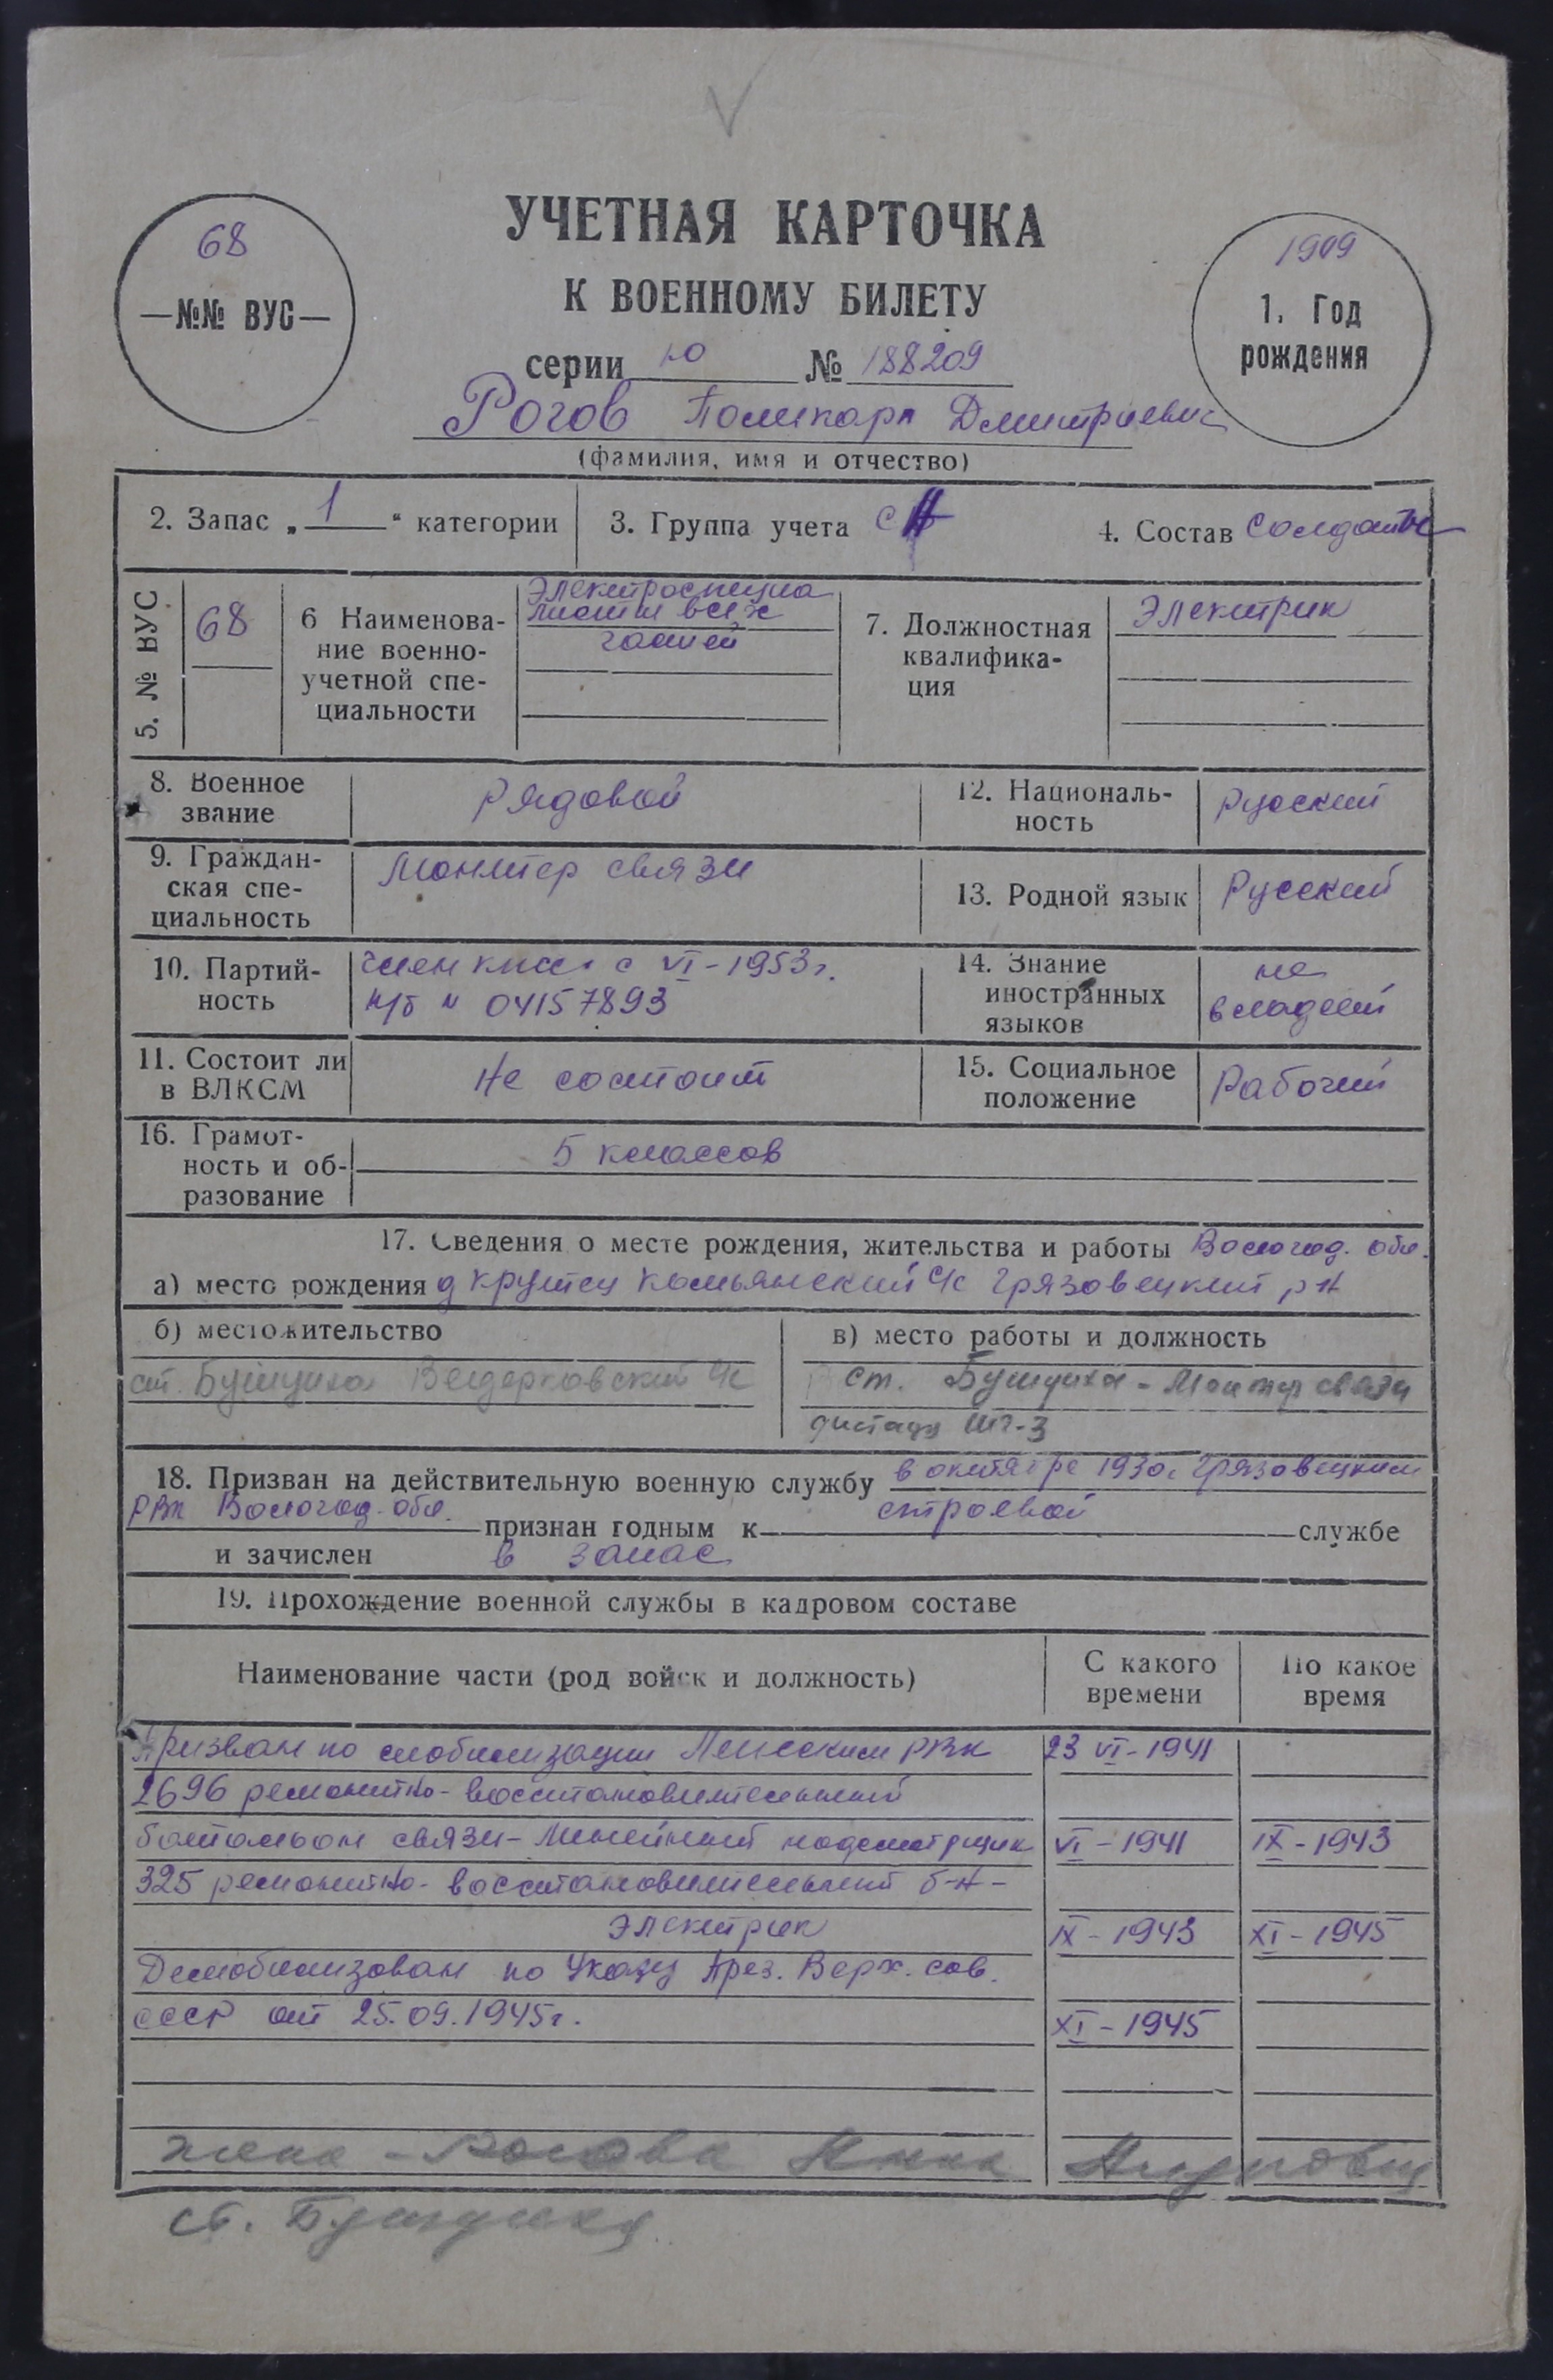 68
—№№ ВУС—
УЧЕТНАЯ КАРТОЧКА
К ВОЕННОМУ БИЛЕТУ
серии Ю № 188209
1909
1. Год
рождения
Рогов Поликарп Дмитриевич
(фамилия, имя и отчество)
2. Запас „ 1 “ категории
3. Группа учета
4. Состав солдаты
5. № ВУС
68
6 Наименова-
ние военно-
учетной спе-
циальности
Электроспециа
листы всех
частей
7. Должностная
квалифика-
ция
Электрик
8. Военное
звание
рядовой
12. Националь-
ность
русский
9. Граждан-
ская спе-
циальность
Монтер связи
13. Родной язык
Русский
10. Партий-
ность
член кпсс с VI-1953г.
п/б № 04157893
14. Знание
иностранных
языков
не
владеет
11. Состоит ли
в ВЛКСМ
Не состоит
15. Социальное
положение
Рабочий
16. Грамот-
ность и об-
разование
5 классов
17. Сведения о месте рождения, жительства и работы Вологод. обл.
а) место рождения д Крутец Комьянский с/с Грязовецкий р-н
б) местожительство
ст. Бушуиха Ведерковский с/с
в) место работы и должность
ст. Бушуиха - Монтер связи
ШЧ-3
18. Призван на действительную военную службу в октябре 1930г Грязовецким
РВК Вологод. обл. признан годным к строевой службе
и зачислен в запас
19. Прохождение военной службы в кадровом составе
Наименование части (род войск и должность)
С какого
времени
По какое
время
Призван по мобилизации РВК 23 VI-1941
2696 ремонтно-восстановительный
батальон связи - Линейный надсмотрщик VI-1941 IX-1943
325 ремонтно-восстановительный б-н-
Электрик IX-1943 XI-1945
Демобилизован по Указу През. Верх. сов.
СССР от 25.09.1945г. XI-1945
жена - Рогова Анна
ст. Бушуиха